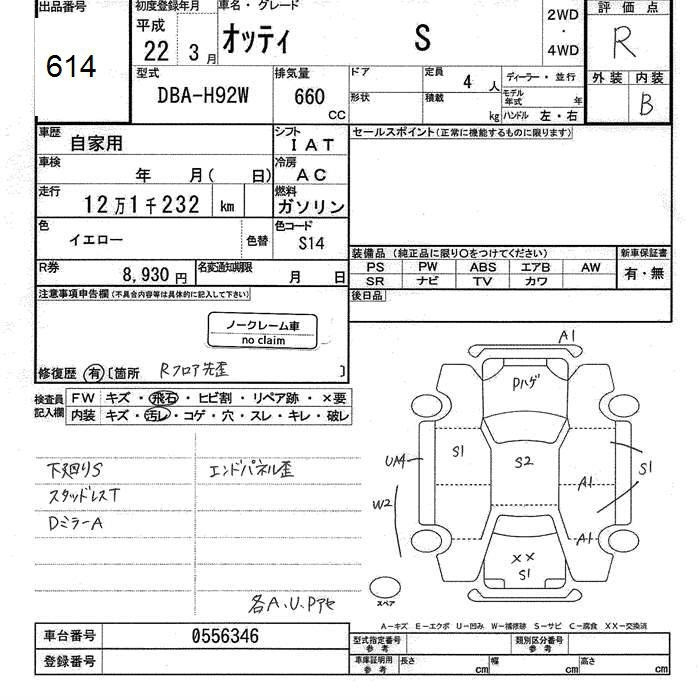 出品番号
614
初度登録年月
平成
22 3月
車名・グレード
オッティ S
2WD
・
4WD
評価点
R
外装 内装
B
型式
DBA-H92W
排気量
660
CC
ドア
定員
4 人
ディーラー・並行
形状
積載
kg
モデル
年式 年
ハンドル 左・右
車歴
自家用
シフト
IAT
セールスポイント(正常に機能するものに限ります)
車検
年 月( 日)
冷房
AC
走行
12万1千232 km
燃料
ガソリン
色
イエロー
色替
色コード
S14
装備品 (純正品に限り○をつけてください)
新車保証書
PS PW ABS エアB AW
有・無
SR ナビ TV カワ
R券
8,930円
名変通知期限
月 日
後日品
注意事項申告欄(不具合内容等は具体的に記入して下さい)
ノークレーム車
no claim
修復歴 有 〔箇所 Rフロア先歪 〕
検査員
記入欄
FW キズ・飛石・ヒビ割・リペア跡・×要
内装 キズ・汚レ・コゲ・穴・スレ・キレ・破レ
下廻りS エンドパネル歪
スタッドレスT
DミラーA
各A、U、Pアセ
A1
Pハゲ
S1
S2
UA1
S1
A1
W2
A1
××
S1
スペア
A-キズ E-エクボ U-凹み W-補修跡 S-サビ C-腐食 XX-交換済
車台番号 0556346
登録番号
型式指定番号
参考
類別区分番号
参考
車庫証明用
参考
長さ cm
幅 cm
高さ cm